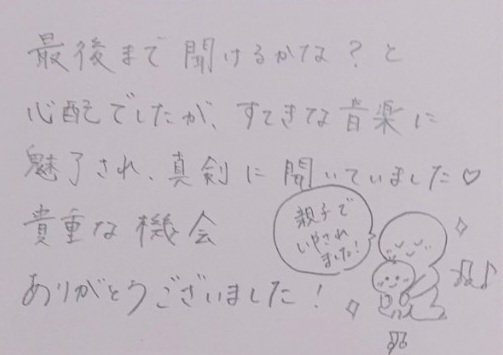 最後まで聞けるかな？と
心配でしたが、すてきな音楽に
魅了され、真剣に聞いていました♡
貴重な機会
ありがとうございました！
親子で
いやされ
ました！